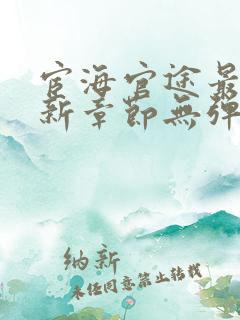 宦海官途最
新章節無彈
纳新
未经同意禁止转载